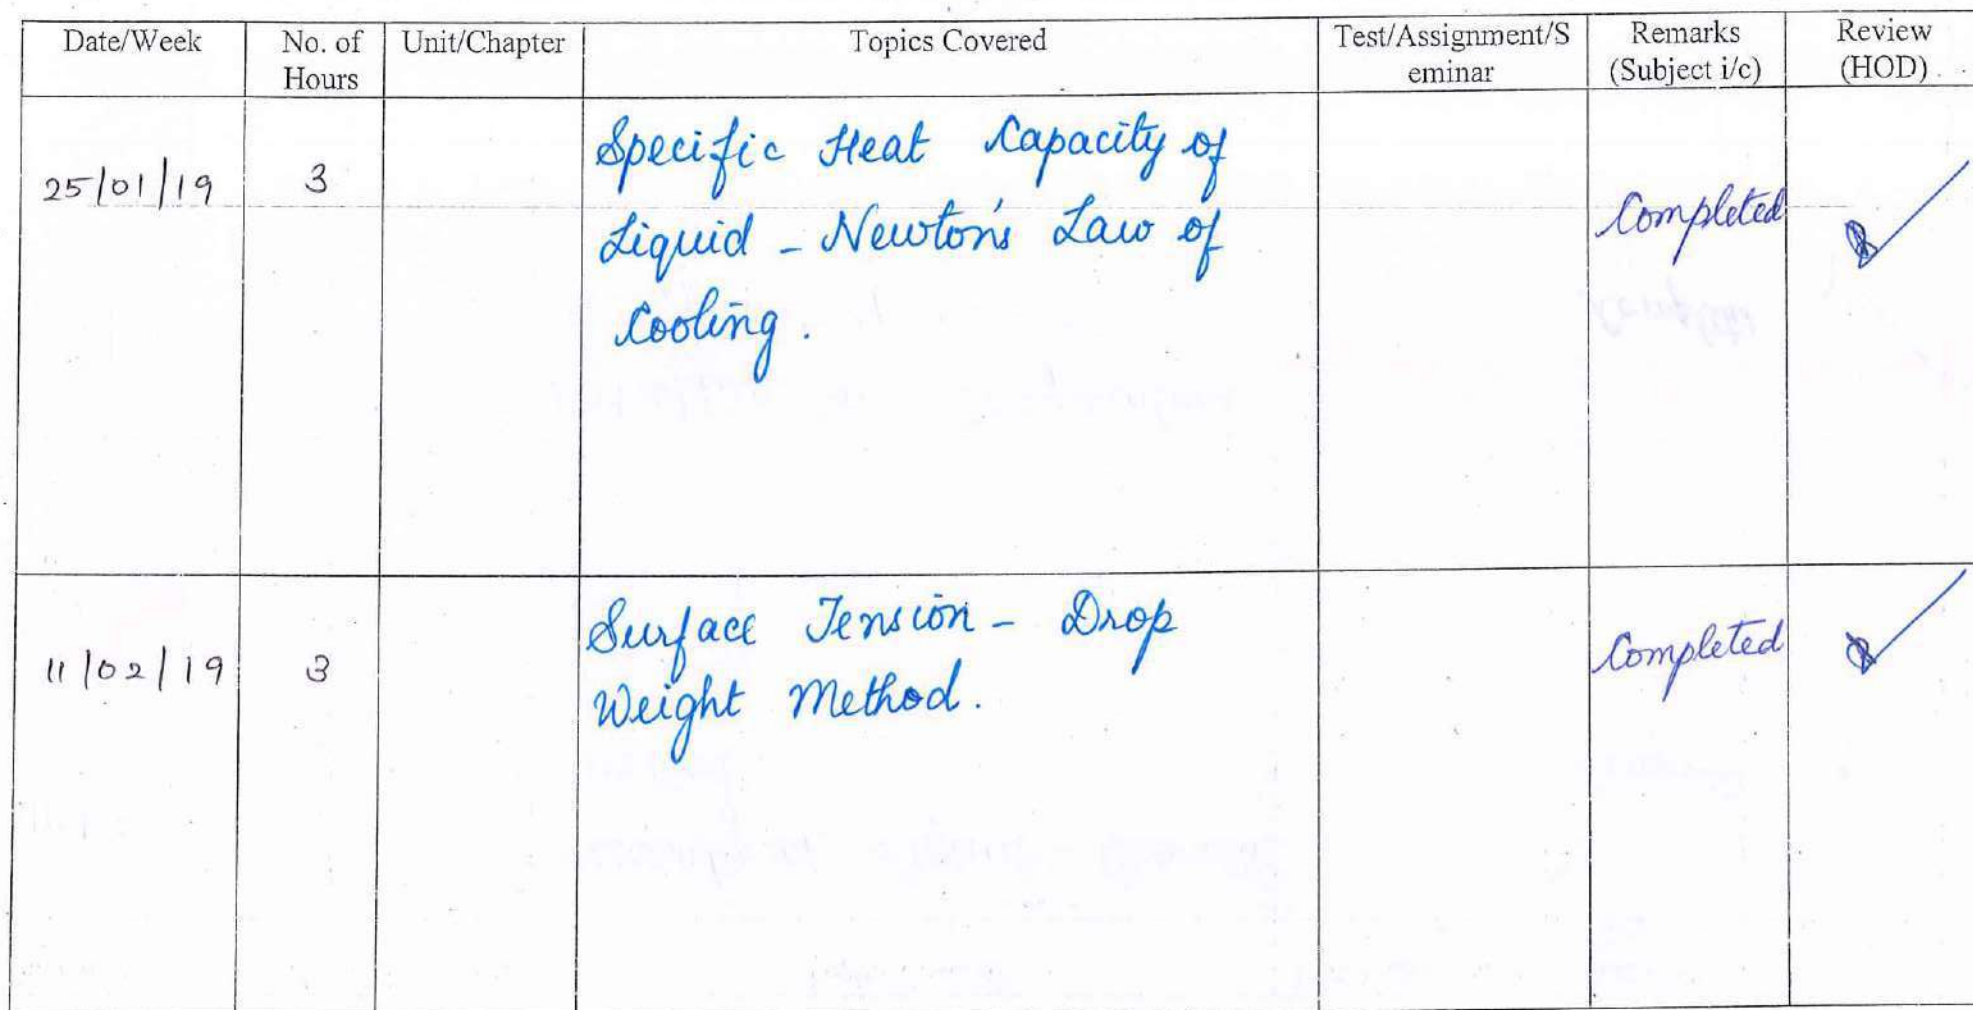 Date/Week No. of Hours Unit/Chapter Topics Covered Test/Assignment/S eminar Remarks (Subject i/c) Review (HOD)
25/01/19 3 Specific Heat Capacity of
Liquid - Newton's Law of
Cooling.
Completed
11/02/19 3 Surface Tension - Drop
Weight Method.
Completed